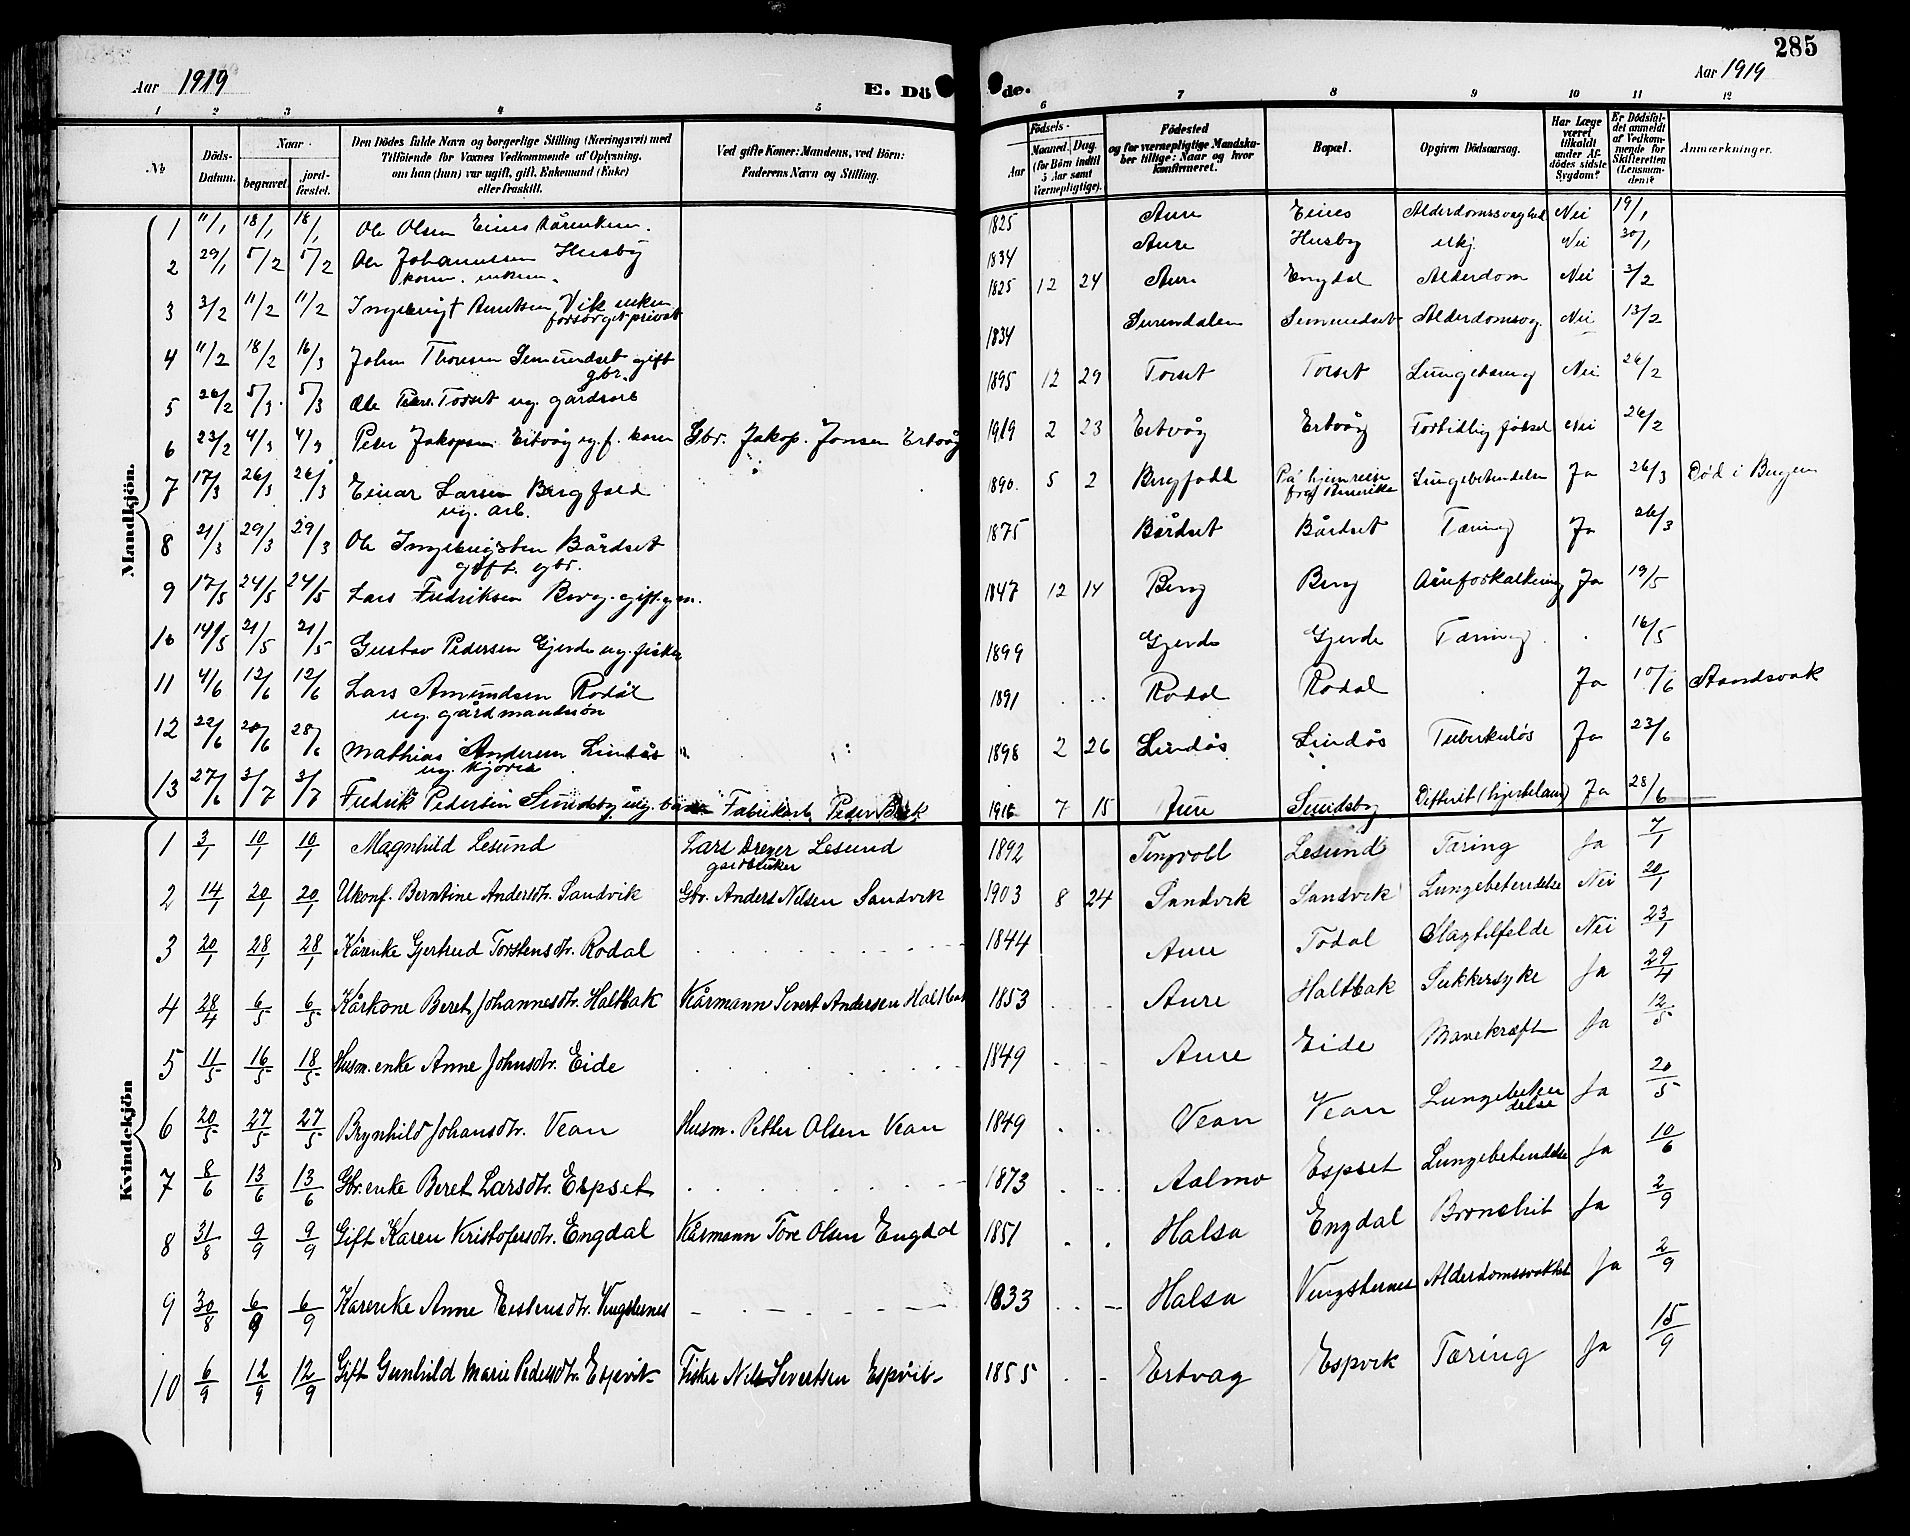 285
Aar 1919
E. Döde.
Aar 1919
1 2 3 4 5 6 7 8 9 10 11 12
No
Döds-Datum.
Naar
begravet.
jordfæstet.
Den Dödes fulde Navn og borgerlige Stilling (Næringsvei) med
Tilföiende for Voxnes Vedkommende af Oplysning,
om han (hun) var ugift, gift, Enkemand (Enke)
eller fraskilt.
Ved gifte Koner: Mandens, ved Börn:
Faderens Navn og Stilling.
Födsels-
Aar
Maaned. Dag.
(for Börn indtil
5 Aar samt
Værnepligtige).
Födested
og for værnepligtige Mandska-
ber tillige: Naar og hvor
konfirmeret.
Bopæl.
Opgiven Dödsaarsag.
Har Læge
været
tilkaldt
under Af-
dödes sidste
Sygdom?
Er Dödsfal-
det anmeldt
af Vedkom-
mende for
Skifteretten
(Lensman-
den)?
Anmærkninger.
Mandkjön.
1 11/1 18/1 18/1 Ole Olsen Eines 1825 Aure Eines Nei 19/1
2 29/1 5/2 5/2 Ole Johannessen Husby 1834 Aure Husby Nei 30/1
3 3/2 11/2 11/2 Vik enkem. forsørget privat 1825 12 24 Aure Engdal Alderdom Nei 3/2
4 11/2 18/2 16/3 John Thoresen gift gbr. 1834 Surendalen Nei 13/2
5 26/2 5/3 5/3 Ole Torset ug. gårdsarb 1895 12 29 Torset Torset Nei 26/2
6 23/2 4/3 4/3 Peder Jakopsen Ertvåg Gbr. Jakop Jonsen Ertvåg 1919 2 23 Ertvåg Ertvåg Fortidlig fødsel Nei 26/2
7 17/3 26/3 26/3 Einar Larsen Bergfald ug. arb. 1890 5 2 På hjemreise fra Amerika Lungebetendelse Ja 26/3 Død i Bergen
8 21/3 29/3 29/3 Ole Bårdset gift. gbr. 1875 Bårdset Bårdset Tæring Ja 26/3
9 17/5 24/5 24/5 Lars Fredriksen Berg. gift. 1847 12 14 Berg Berg Ja 19/5
10 14/5 21/5 21/5 Gustav Pedersen Gjerde ug. fisker 1899 Gjerde Gjerde Tæring 16/5
11 4/6 12/6 12/6 Lars Amundsen Rodal ug. gårdmandssøn 1891 Rodal Rodal Ja 10/6 Aandsvak
12 22/6 28/6 Mathias Andersen Lindås 1898 2 26 Lindås Lindås Tuberkuløs Ja 23/6
13 27/6 3/7 3/7 Fredrik Pedersen Sundsby Fabrikarb. Peder 1916 7 15 Sundsby Ja 28/6
Kvindekjön
1 3/1 10/1 10/1 Magnhild Lesund Lars Dreyer Lesund gardbruker 1892 Tingvoll Lesund Tæring Ja 7/1
2 14/1 20/1 20/1 Ukonf. Berntine Andersdtr. Sandvik Gbr. Anders Nilsen Sandvik 1903 8 24 Sandvik Sandvik Lungebetendelse Nei 20/1
3 20/1 28/1 28/1 Kårenke Gjertrud Torstensdtr. Rodal 1844 Aure Todal Slagtilfelde Nei 23/1
4 28/4 6/5 6/5 Kårkone Beret Johannesdtr. Haltbak Kårmann Sivert Andersen Haltbak 1853 Aure Haltbak Sukkersyke Ja 29/4
5 11/5 16/5 18/5 Husm. enke Anne Johnsdtr. Eide 1849 Aure Eide Mavekræft Ja 12/5
6 20/5 27/5 27/5 Brynhild Johansdtr. Vean Husm. Petter Olsen Vean 1849 Vean Vean Lungebetendelse Ja 20/5
7 8/6 13/6 13/6 Gbr. enke Beret Larsdtr. Espset 1873 Aalmo Espset Lungebetendelse Ja 10/6
8 31/8 9/9 9/9 Gift Karen Kristofersdtr. Engdal Kårmann Tore Olsen Engdal 1851 Halsa Engdal Bronchit Ja 2/9
9 30/8 6/9 6/9 Karenke Anne Eistensdtr. Vingsternes 1833 Halsa Vingsternes Alderdomssvakhet Ja 2/9
10 6/9 12/9 12/9 Gift Gunhild Marie Pedersdtr. Espvik Fisker Nils Severtsen Espvik 1855 Ertvag Espvik Tæring Ja 15/9